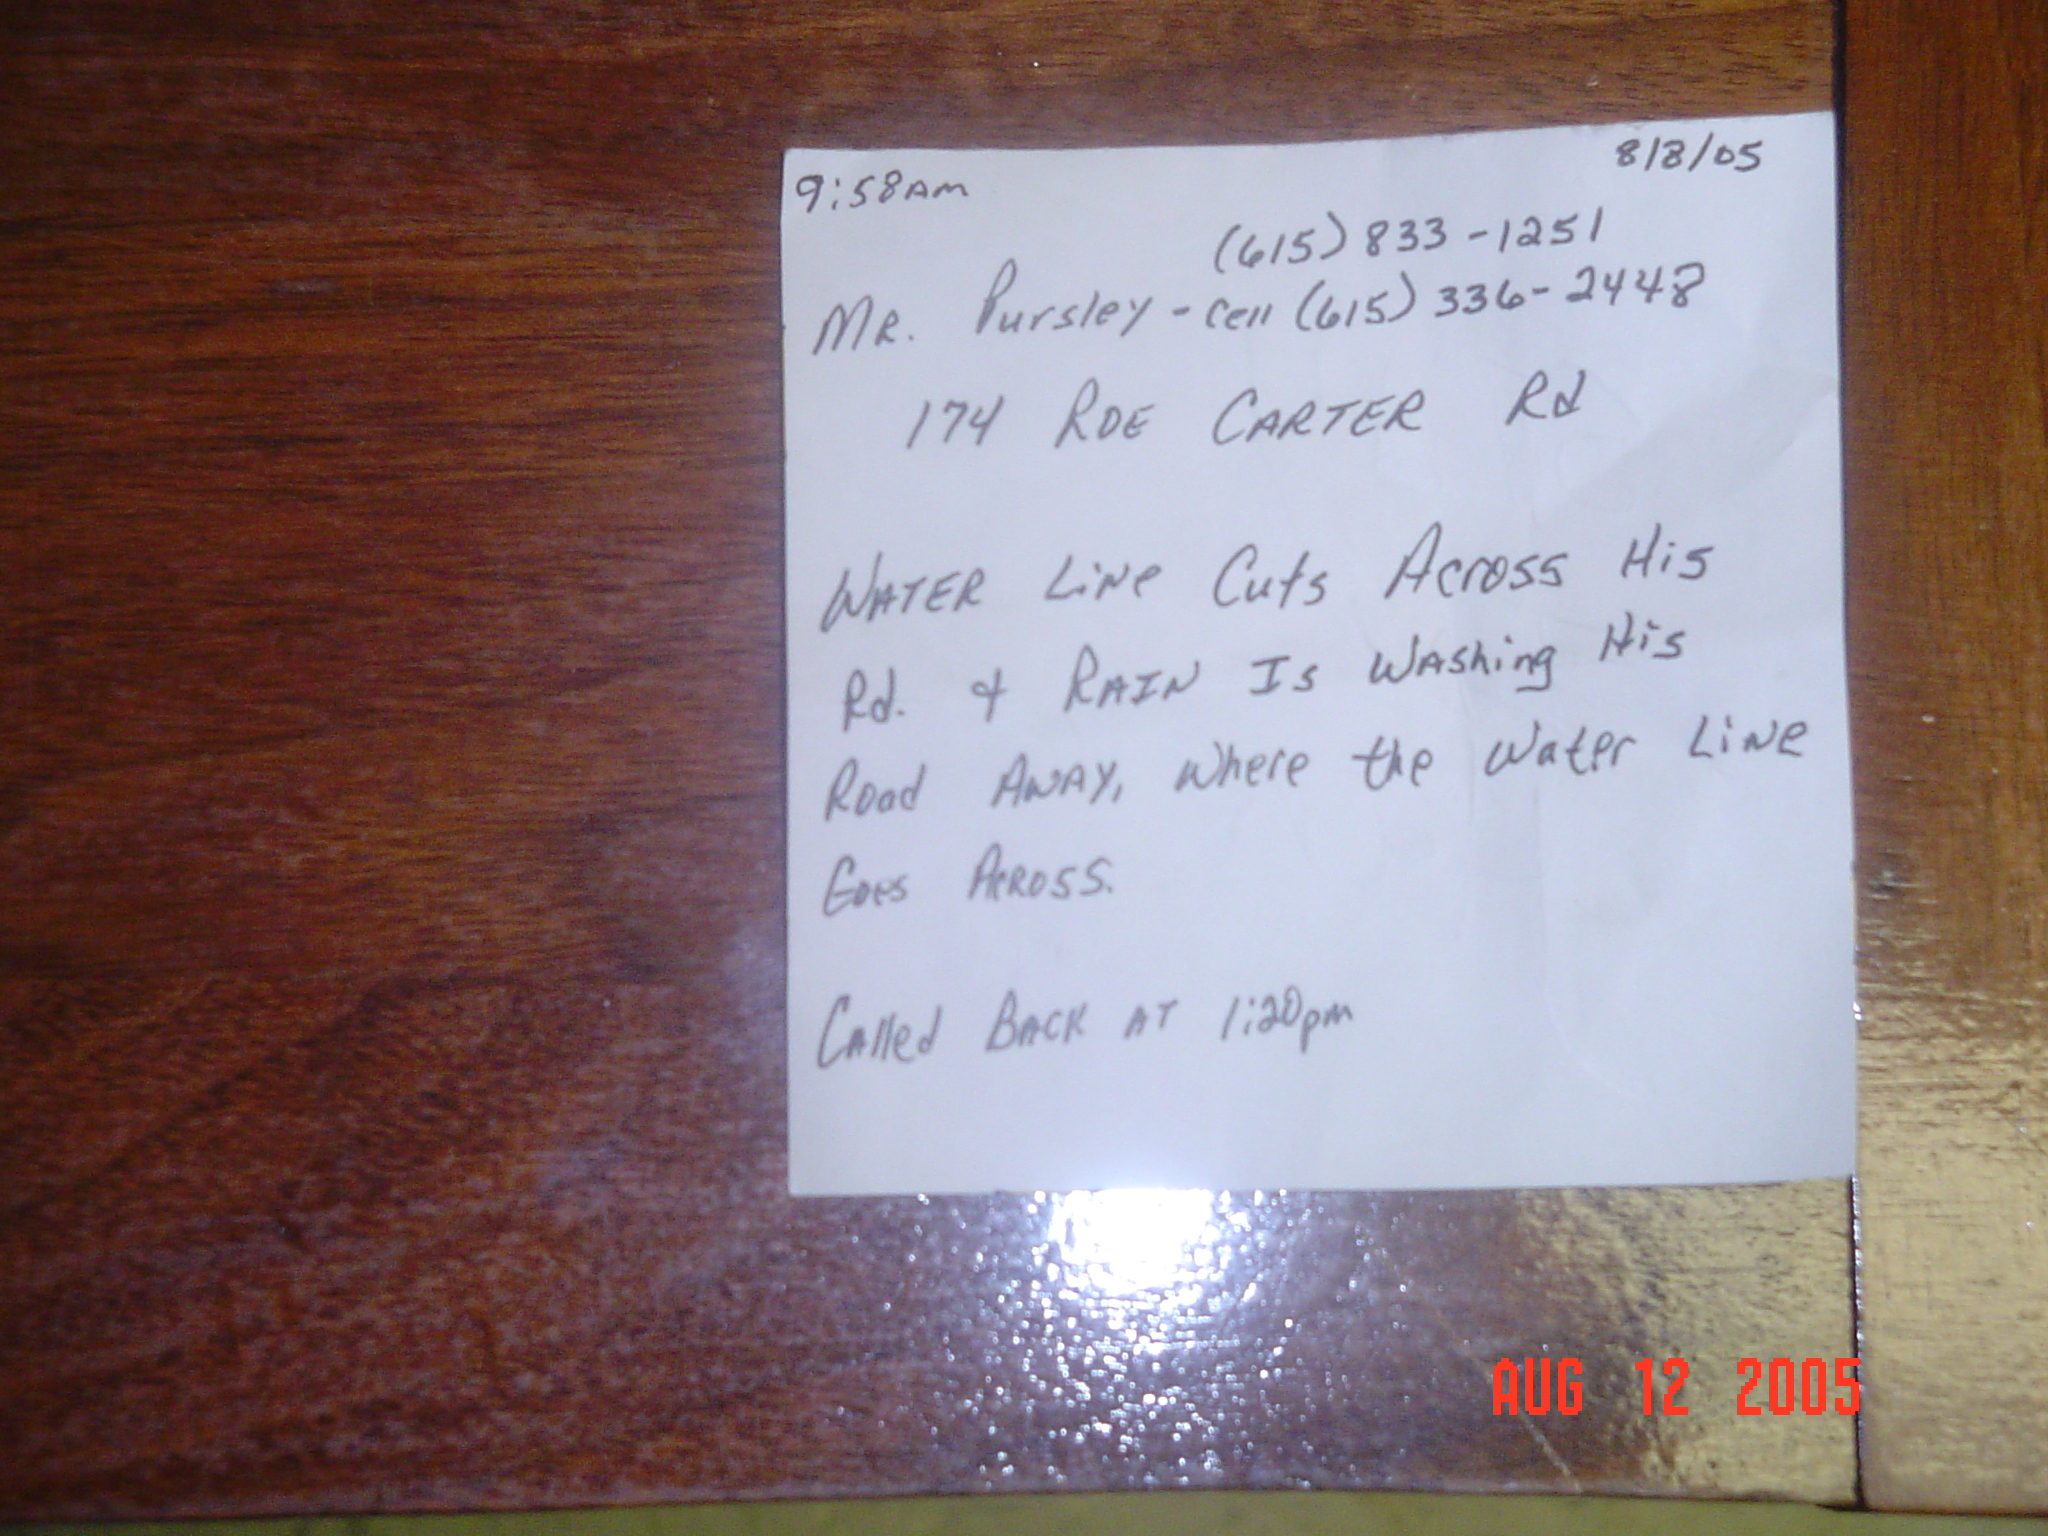 9:58AM 8/8/05
(615) 833-1251
MR. Pursley - cell (615) 336-2448
174 ROE CARTER Rd
WATER LiNe Cuts Across His
Rd. & RAIN Is WAshing His
Road AWAY, Where the Water LiNe
Goes Across.
CAlled BACK AT 1:20pm
AUG 12 2005